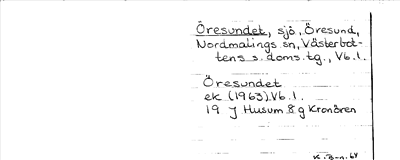 Öresundet, sjö, Öresund,
Nordmalings sn, Västerbot-
tens s. doms. tg., Vb. l.
Öresundet
ek (1963) Vb. l.
19 J Husum 8 g Kronören